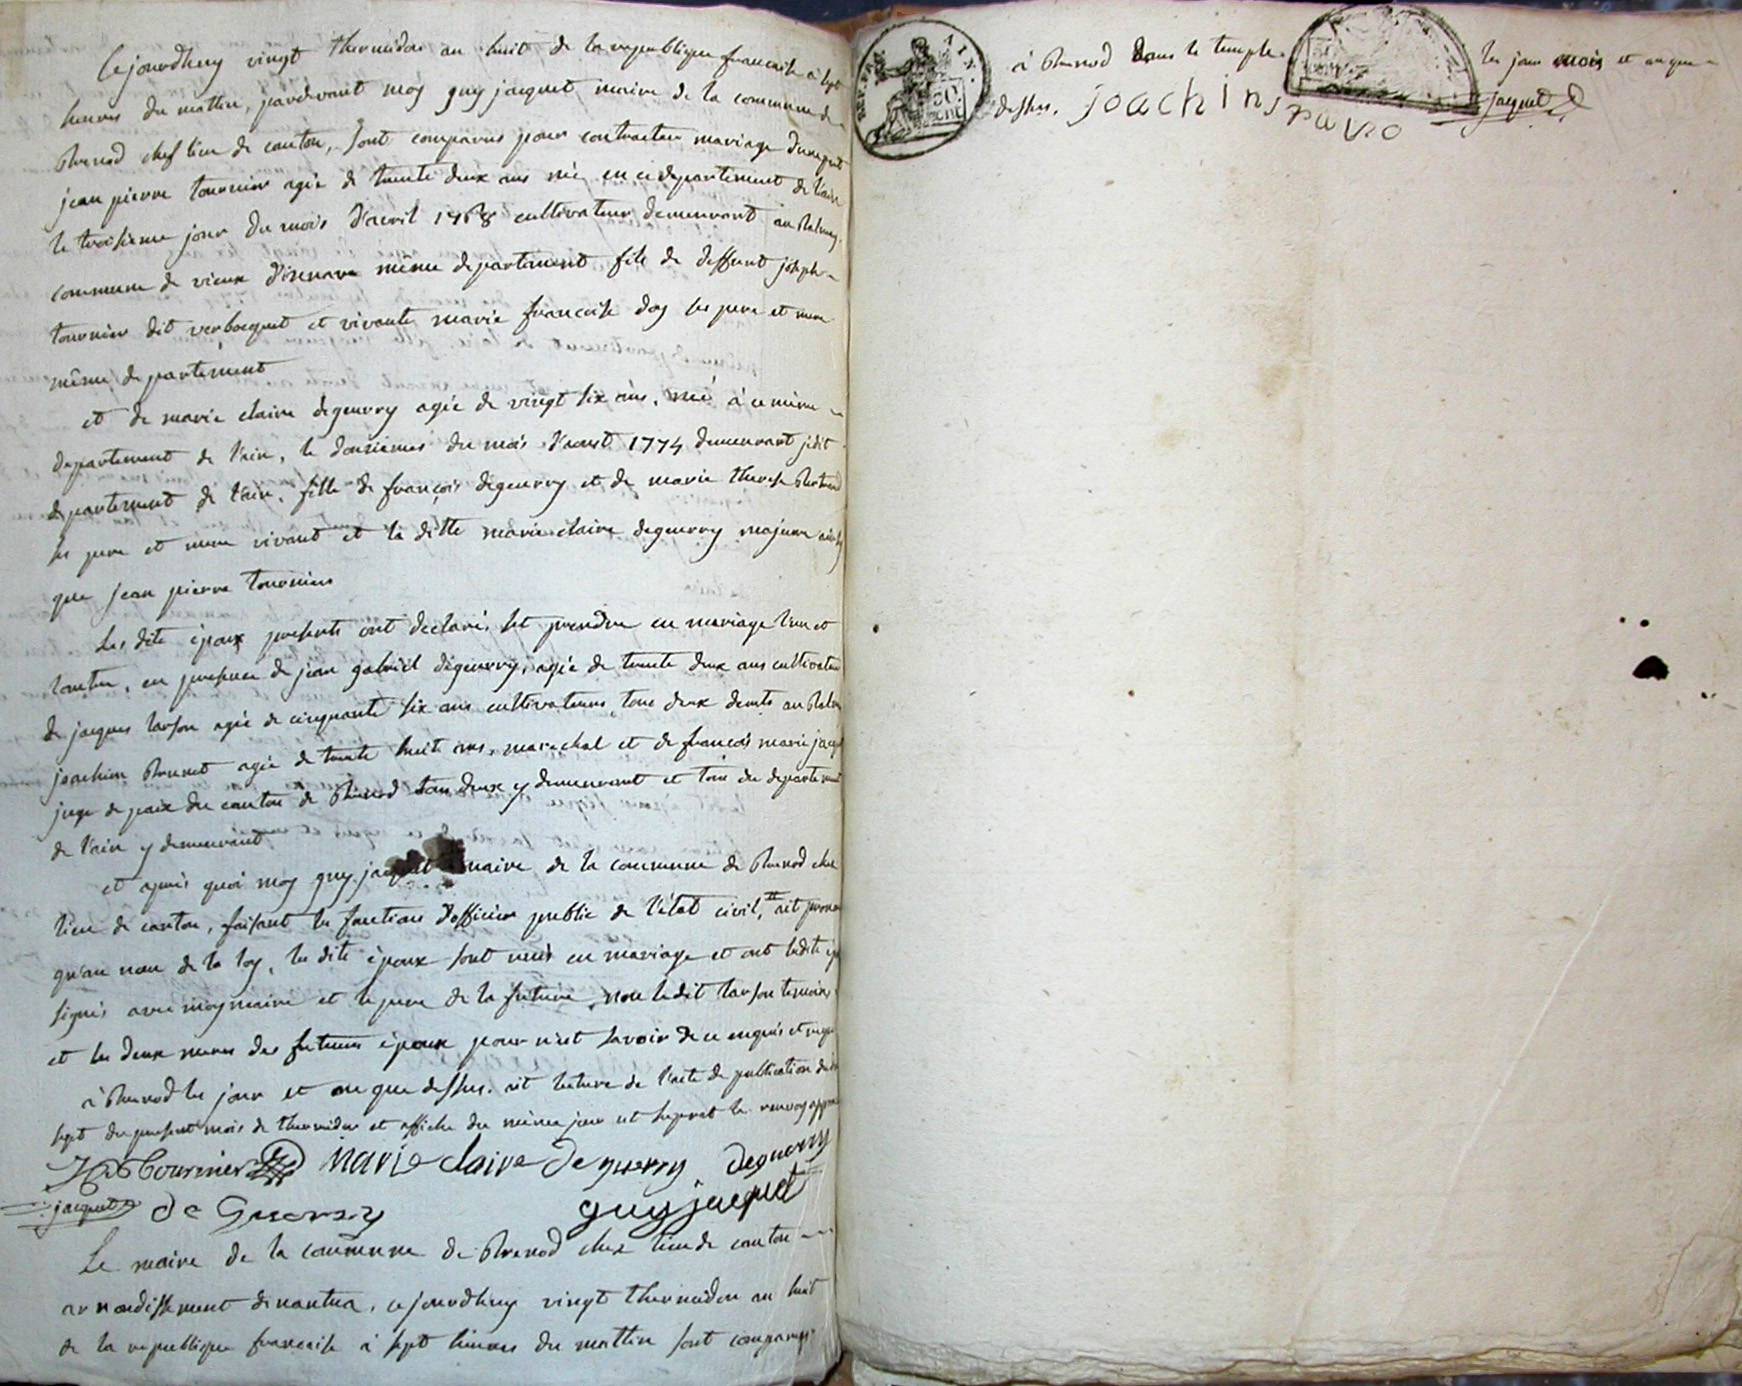 Cejourdhuy vingt thermidor an huit de la republique francaise à sept
heures du mattin, pardevant moy guy jacquet maire de la commune de
Brenod chef lieu de canton, sont comparus pour contracter mariage d'une part
jean pierre tournier agée de trente deux ans né en ce departement de l'ain
le troisieme jour du mois d'avril 1768 cultivateur demeurant au Balmay
commune de vieux d'isenave même departement fils de deffunt joseph
tournier dit verbocquet et vivante marie francoise Doy ses pere et mere
même departement
et de marie claire deguerry agée de vingt six ans, né à ce même
departement de l'ain, le douziemes du mois d'aoust 1774 demeurant jdit
departement de l'ain, fille de françois deguerry et de marie therese
ses pere et mere vivant et la ditte marie claire deguerry majeure
que jean pierre tournier
Les dits époux presents ont declaré se prendre en mariage l'un et
lautre, en presence de jean gabriel deguerry, agée de trente deux ans cultivateur
de jacques agée de cinquante six ans cultivateurs tous deux au
joachim agée de trente huit ans, marechal et de francois marie
juge de paix du canton de Brenod tous deux y demeurant et tous du departement
de l'ain y demeurant
et aprés quoi moy guy jacquet maire de la commune de Brenod chef
lieu de canton, faisant les fonctions d'officier public de l'état civil, ait
qu'au nom de la loy, les dits époux sont unis en mariage et ont lesdits
signés avec moy maire et le pere de la future non ledit temoin
et les deux meres des futurs époux pour n'eut savoir de ce enquis et requis
à Brenod les jour et an que dessus. ait lecture de l'acte de publication du
sept du present mois de thermidor et affiche du même jour
Tournier marie claire deguerry deguerry
jacquet de Guerry guy jacquet
Le maire de la commune de Brenod chef lieu de canton
arrondissement de nantua, cejourdhuy vingt thermidor an huit
de la republique francaise à sept heures du mattin sont comparus
à Brenod dans le temple les jour mois et an que
dessus. joachin jacquet